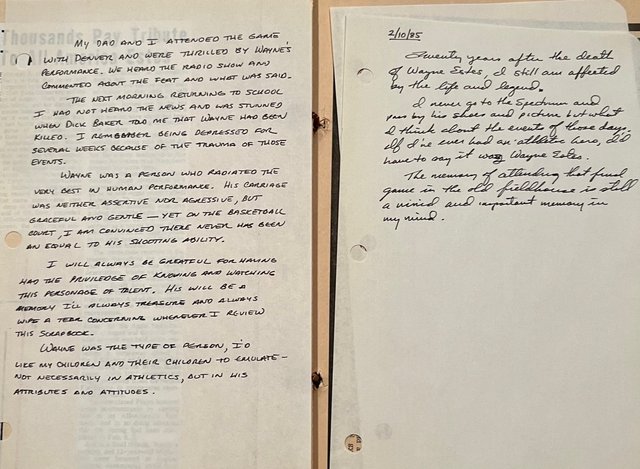 Thousands Pay Tribute
MY DAD AND I ATTENDED THE GAME
WITH DENVER AND WERE THRILLED BY WAYNE'S
PERFORMANCE. WE HEARD THE RADIO SHOW AND
COMMENTED ABOUT THE FEAT AND WHAT WAS SAID.
THE NEXT MORNING RETURNING TO SCHOOL
I HAD NOT HEARD THE NEWS AND WAS STUNNED
WHEN DICK BAKER TOLD ME THAT WAYNE HAD BEEN
KILLED. I REMEMBER BEING DEPRESSED FOR
SEVERAL WEEKS BECAUSE OF THE TRAUMA OF THOSE
EVENTS.
WAYNE WAS A PERSON WHO RADIATED THE
VERY BEST IN HUMAN PERFORMANCE. HIS CARRIAGE
WAS NEITHER ASSERTIVE NOR AGRESSIVE, BUT
GRACEFUL AND GENTLE — YET ON THE BASKETBALL
COURT, I AM CONVINCED THERE NEVER HAS BEEN
AN EQUAL TO HIS SHOOTING ABILITY.
I WILL ALWAYS BE GREATFUL FOR HAVING
HAD THE PRIVILEDGE OF KNOWING AND WATCHING
THIS PERSONAGE OF TALENT. HIS WILL BE A
MEMORY I'LL ALWAYS TREASURE AND ALWAYS
WIPE A TEAR CONCERNING WHENEVER I REVIEW
THIS SCRAPBOOK.
WAYNE WAS THE TYPE OF PERSON, I'D
LIKE MY CHILDREN AND THEIR CHILDREN TO EMULATE —
NOT NECESSARILY IN ATHLETICS, BUT IN HIS
ATTRIBUTES AND ATTITUDES.
2/10/85
Seventy years after the death
of Wayne Estes, I still am affected
by the life and legend.
I never go to the Spectrum and
pass by his shoes and picture but what
I think about the events of those days.
If I've ever had an athletic hero, I'd
have to say it was Wayne Estes.
The memory of attending that final
game in the old fieldhouse is still
a vivid and important memory in
my mind.